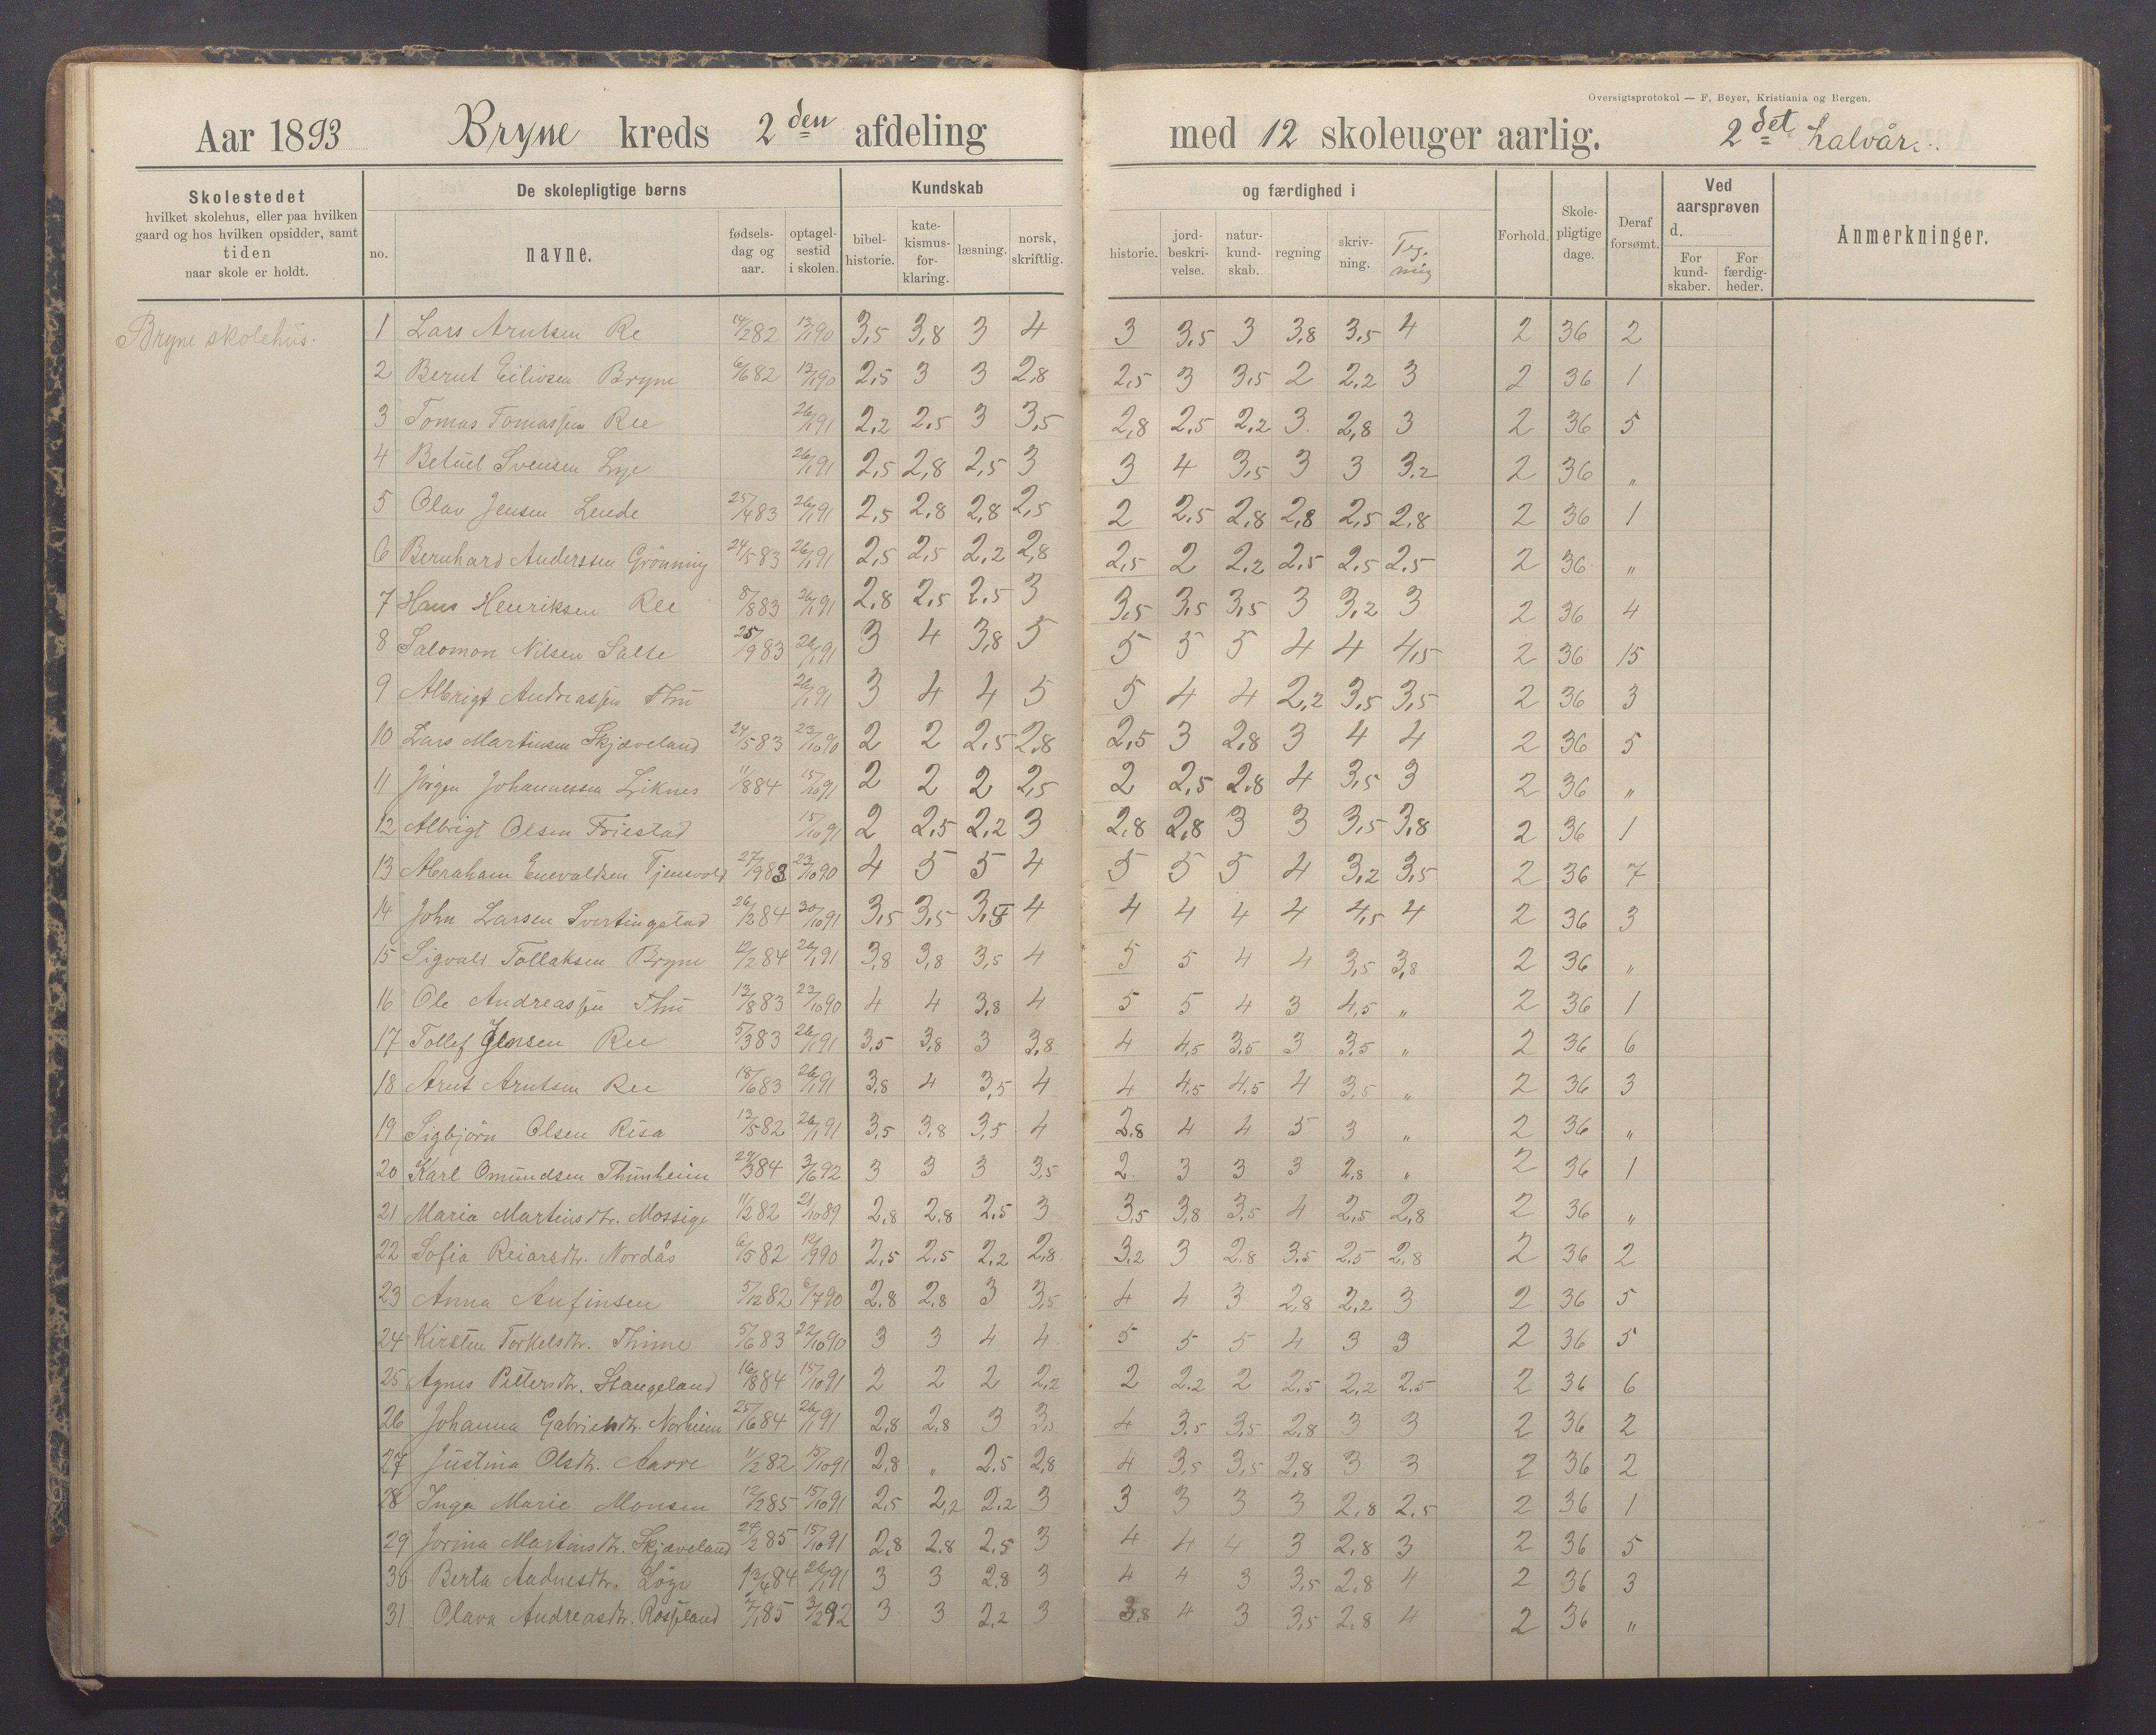 Oversigtsprotokol — F. Beyer, Kristiania og Bergen.
Aar 1893 Bryne kreds 2den afdeling med 12 skoleuger aarlig. 2det halvår.
Skolestedet
hvilket skolehus, eller paa hvilken
gaard og hos hvilken opsidder, samt
tiden
naar skole er holdt.
De skolepligtige børns
no. navne. fødselsdag og aar. optagelsestid i skolen.
Kundskab og færdighed i
bibelhistorie. katekismusforklaring. læsning. norsk, skriftlig. historie. jordbeskrivelse. naturkundskab. regning skrivning. Tegning
Forhold. Skolepligtige dage. Deraf forsømt.
Ved aarsprøven d.
For kundskaber. For færdigheder.
Anmerkninger.
Bryne skolehus.
1 Lars Arntsen Re 14/2 82 13/1 90 3,5 3,8 3 4 3 3,5 3 3,8 3,5 4 2 36 2
2 Bernt Eilivsen Bryne 6/6 82 13/1 90 2,5 3 3 2,8 2,5 3 3,5 2 2,2 3 2 36 1
3 Tomas Tomassen Ree 26/1 91 2,2 2,5 3 3,5 2,8 2,5 2,2 3 2,8 3 2 36 5
4 Betuel Svensen Lye 26/1 91 2,5 2,8 2,5 3 3 4 3,5 3 3 3,2 2 36 "
5 Olav Jensen Lende 25/4 83 26/1 91 2,5 2,8 2,8 2,5 2 2,5 2,8 2,8 2,5 2,8 2 36 1
6 Bernhard Anderssen Grönning 24/5 83 26/1 91 2,5 2,5 2,2 2,8 2,5 2 2,2 2,5 2,5 2,5 2 36 "
7 Hans Henriksen Ree 8/8 83 26/1 91 2,8 2,5 2,5 3 3,5 3,5 3,5 3 3,2 3 2 36 4
8 Salomon Nilsen Salte 25/9 83 26/1 91 3 4 3,8 5 5 5 5 4 4 4,5 2 36 15
9 Albrigt Andreassen Thu 26/1 91 3 4 4 5 5 4 4 2,2 3,5 3,5 2 36 3
10 Lars Martinsen Skjæveland 24/5 83 23/10 90 2 2 2,5 2,8 2,5 3 2,8 3 4 4 2 36 5
11 Jörgen Johannessen Liknes 11/8 84 15/10 91 2 2 2 2,5 2 2,5 2,8 4 3,5 3 2 36 "
12 Albrigt Olsen Foiestad 15/10 91 2 2,5 2,2 3 2,8 2,8 3 3 3,5 3,8 2 36 1
13 Abraham Enevaldsen Tjensvold 27/9 83 23/10 90 4 5 5 4 5 5 5 4 3,2 3,5 2 36 7
14 John Larsen Svertingstad 26/2 84 30/10 91 3,5 3,5 3,8 4 4 4 4 4 4,5 4 2 36 3
15 Sigvald Tollaksen Bryne 12/2 84 26/1 91 3,8 3,8 3,5 4 5 5 4 4 3,5 3,8 2 36 "
16 Ole Andreassen Thu 13/8 83 23/10 90 4 4 3,8 4 5 5 4 3 4,5 " 2 36 1
17 Tollef Jensen Ree 5/3 83 26/1 91 3,5 3,8 3 3,8 4 4,5 3,5 3 3,5 " 2 36 6
18 Arnt Arntsen Ree 18/6 83 26/1 91 3,8 4 3,5 4 4 4,5 4,5 4 3,5 " 2 36 3
19 Sigbjörn Olsen Risa 13/5 82 26/1 91 3,5 3,8 3,5 4 2,8 4 4 5 3 " 2 36 "
20 Karl Omundsen Thunheim 29/3 84 3/6 92 3 3 3 3,5 2 3 3 3 2,8 " 2 36 1
21 Maria Martinsdtr. Mossige 11/2 82 21/10 89 2,8 2,8 2,5 3 3,5 3,8 3,5 4 2,5 2,8 2 36 "
22 Sofia Reiarsdtr. Nordås 6/5 82 12/9 90 2,5 2,5 2,2 2,8 3,2 3 2,8 3,5 2,5 2,8 2 36 2
23 Anna Anfinsen 5/12 82 6/7 90 2,8 2,8 3 3,5 4 4 3 2,8 2,2 3 2 36 5
24 Kirsten Torkelsdtr. Thime 5/6 83 22/10 90 3 3 4 4 5 5 5 4 3 3 2 36 5
25 Agnes Pettersdtr. Stangeland 16/8 84 15/10 91 2 2 2 2,2 2 2,2 2 2,5 2,2 2,5 2 36 6
26 Johanna Gabrielsdtr. Norheim 25/6 84 26/1 91 2,8 2,8 3 3,5 4 3,5 3,5 2,8 3 3 2 36 2
27 Justina Olsdtr. Aarre 11/2 82 15/10 91 2,8 " 2,5 2,8 4 3,5 3,5 2,8 3 3 2 36 2
28 Inga Marie Monsen 12/2 85 15/10 91 2,5 2,2 2,2 3 3 3 3 3 2,8 2,5 2 36 1
29 Jorina Martinsdtr. Skjæveland 24/2 85 15/10 91 2,8 2,8 2,5 3 4 4 4 3 2,8 3 2 36 5
30 Berta Aadnesdtr. Löge 13/4 84 26/1 91 3 3 2,8 3 4 4 3 3,5 2,8 4 2 36 3
31 Olava Andreasdtr. Rosseland 7/1 85 3/2 92 3 3 2,2 3 3,8 4 3 3,5 2,8 4 2 36 "